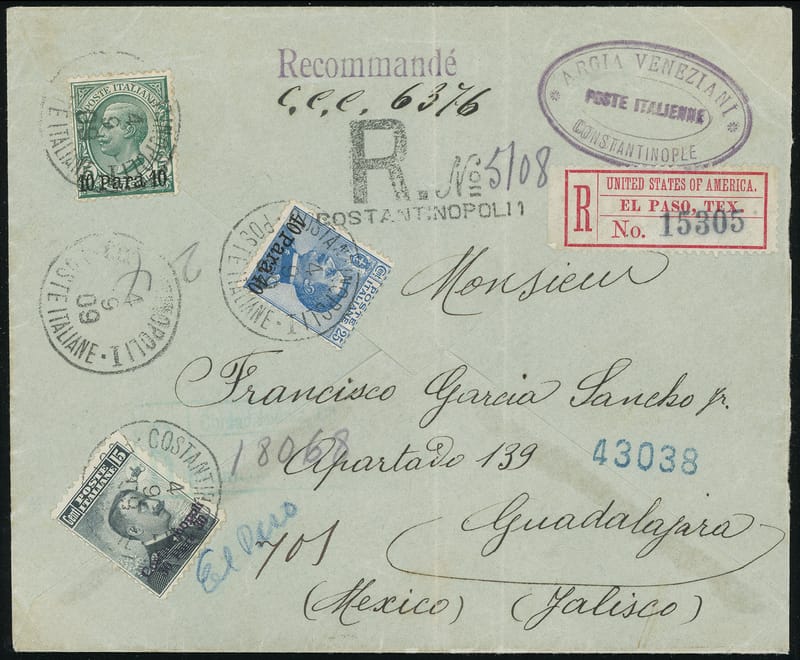 Recommandé
C.C.C. 6376
R. No 5108
COSTANTINOPOLI 1
ARGIA VENEZIANI
POSTE ITALIENNE
CONSTANTINOPLE
R
UNITED STATES OF AMERICA.
EL PASO, TEX.
No. 15305
POSTE ITALIANE
10 Para 10
40 Para 40
POSTE ITALIANE
Cent 25
4 9 09
POSTE ITALIANE · I
Monsieur
Francisco Garcia Sancho Jr.
18068
Apartado 139
43038
Cent 15
POSTE ITALIANE
El Paso
701
Guadalajara
(Mexico) (Jalisco)